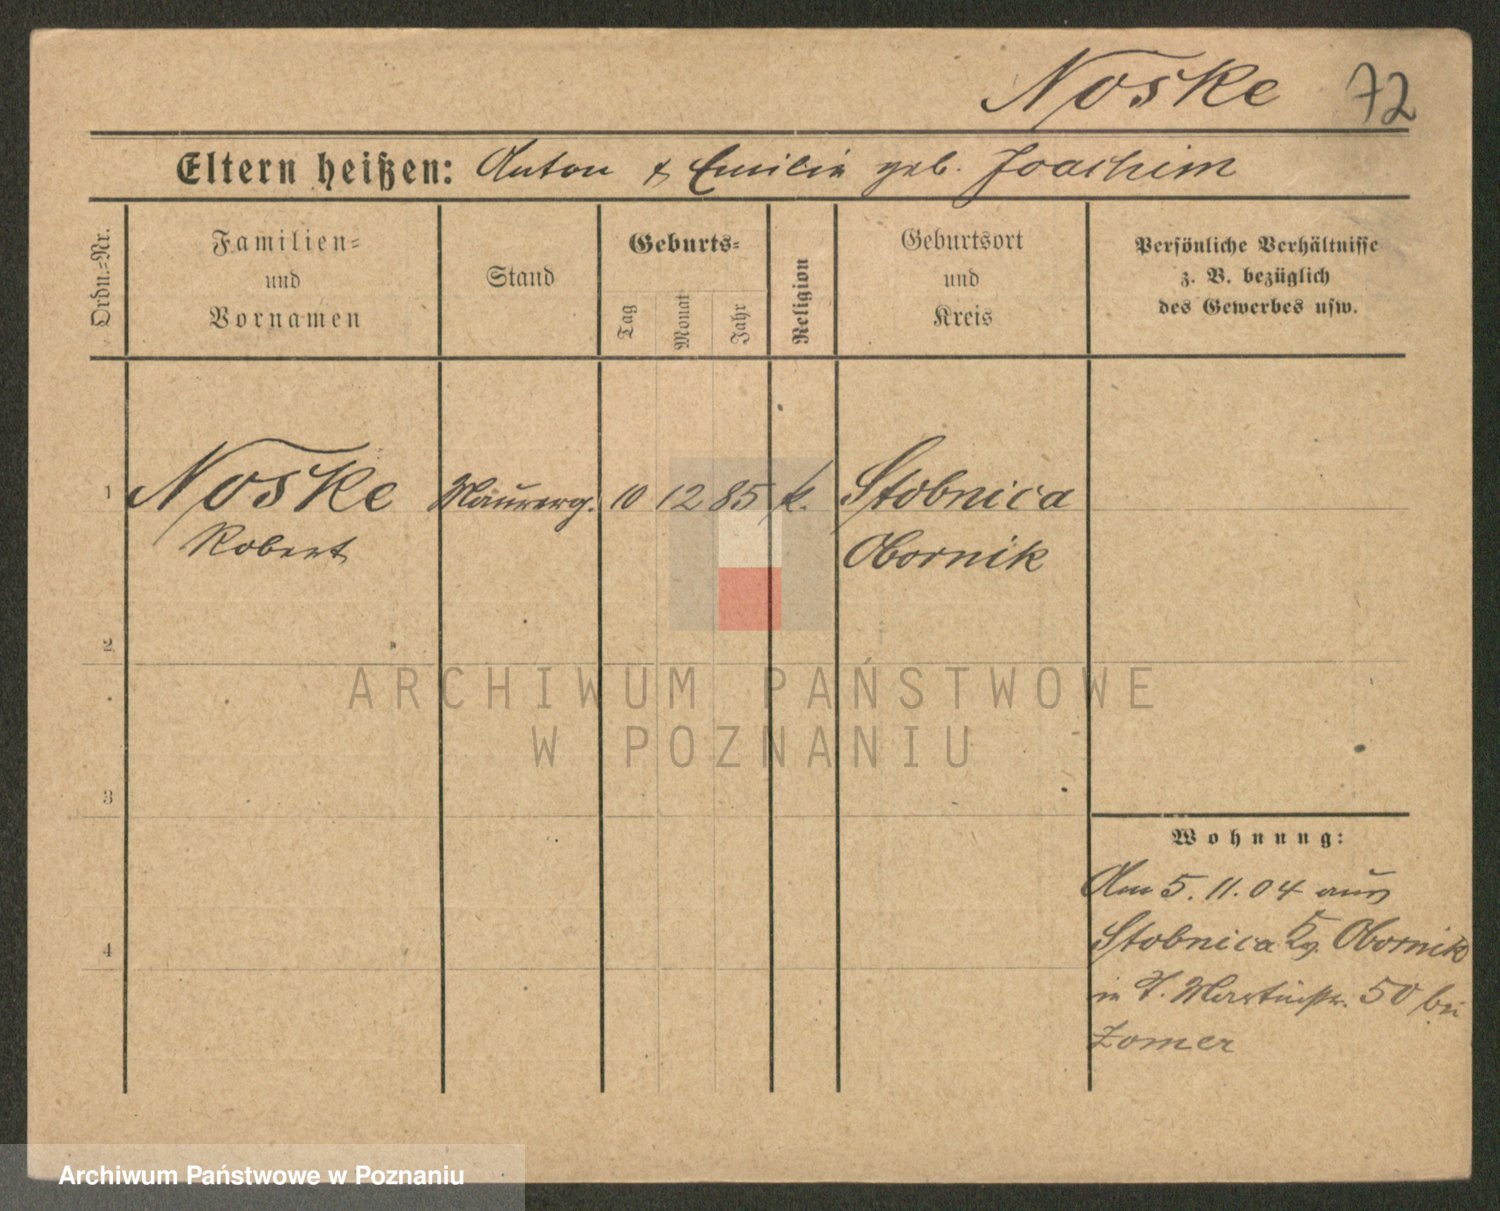 Noske 72
Eltern heißen: Anton & Emilie geb. Joachim
Ordn.=Nr.
Familien=
und
Vornamen
Stand
Geburts=
Tag
Monat
Jahr
Religion
Geburtsort
und
Kreis
Persönliche Verhältnisse
z. B. bezüglich
des Gewerbes usw.
1 Noske Maurerg. 10 12 85 k. Stobnica
Robert Obornik
2
ARCHIWUM PAŃSTWOWE
W POZNANIU
3
Wohnung:
Am 5. 11. 04 aus
Stobnica Kr. Obornik
4
in St. Martinstr. 50 bei
Zomer
Archiwum Państwowe w Poznaniu